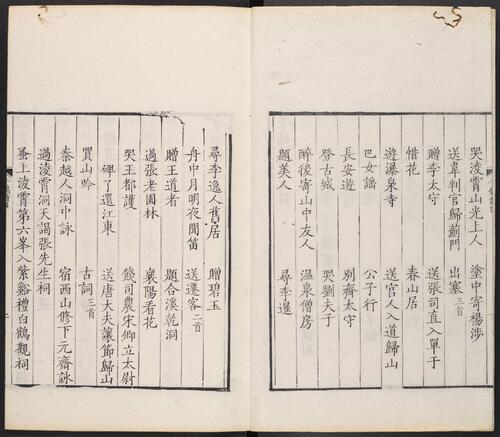 哭凌霄山光上人
塗中寄楊涉
送韋判官歸薊門
出塞三首
贈李太守
送張司直入單于
惜花
春山居
遊瀑泉寺
送宮人入道歸山
巴女謠
公子行
長安遊
別齊太守
登古城
哭劉夫子
醉後寄山中友人
溫泉僧房
題美人
尋李暹
尋李逸人舊居
贈碧玉
舟中月明夜聞笛
送遷客二首
贈王道者
題合溪乾洞
過張老園林
襄陽看花
哭王都護
餞司農宋卿立太尉
碑了還江東
送唐大夫讓節歸山
買山吟
古詞三首
秦越人洞中詠
宿西山修下元齋詠
過淩霄洞天謁張先生祠
蚤上淩霄第六峯入紫谿禮白鶴觀祠